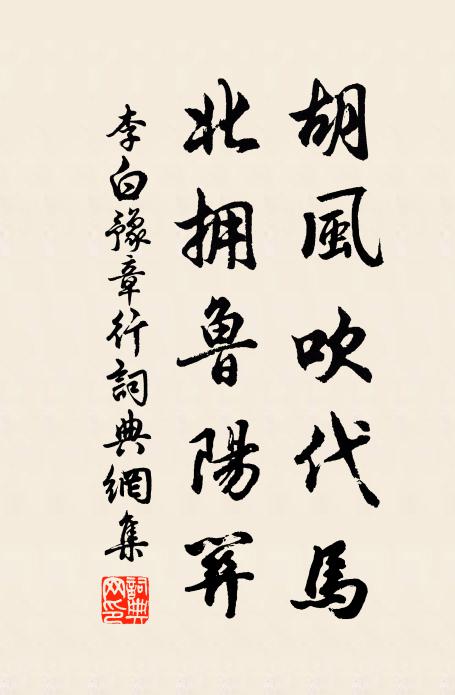 胡風吹代馬
北拥魯陽關
李白豫章行詞典網集
詞典網印